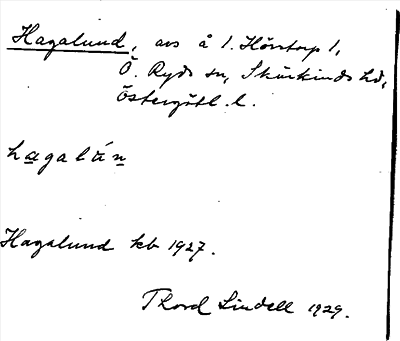 Hagalund, avs å 1. Hörstorp 1,
Ö. Ryds sn, Skärkinds hd,
Östergötl. l.
hagalún
Hagalund kb 1927.
Thord Lindell 1929.